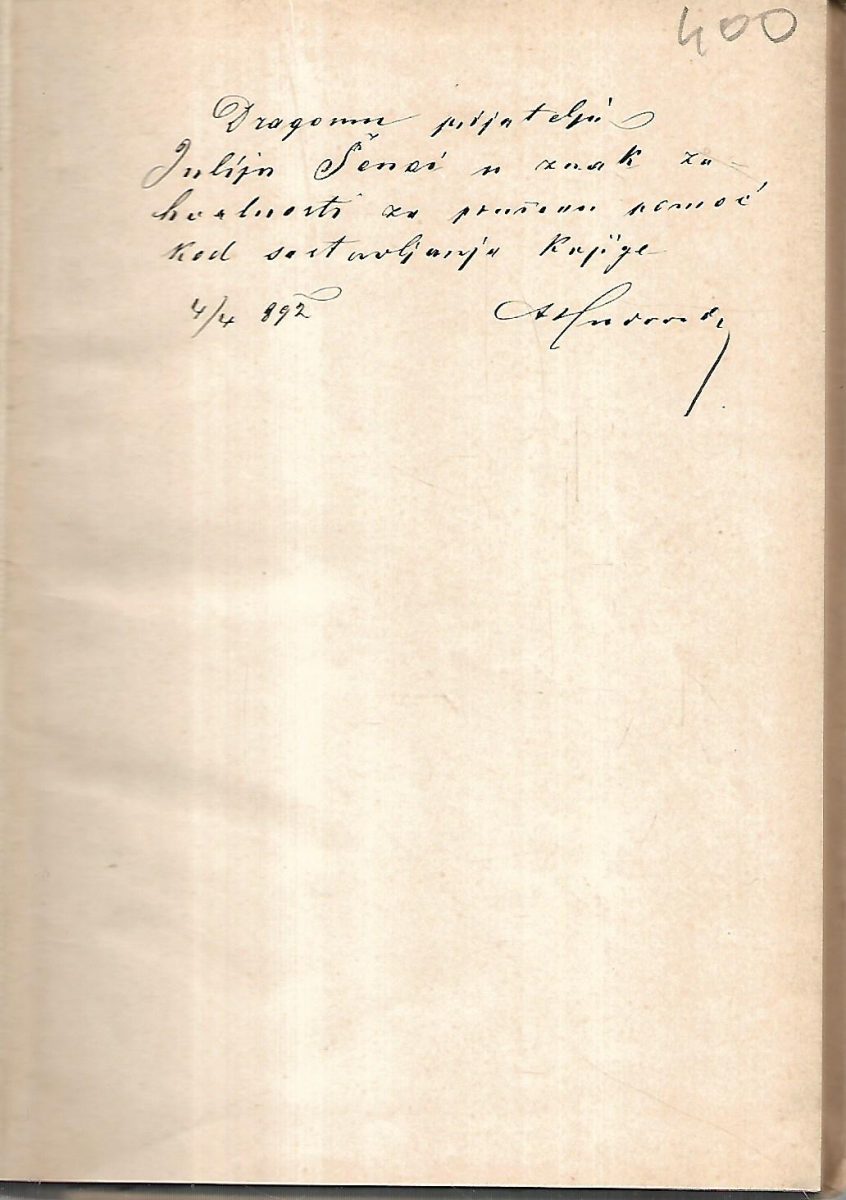 400
Dragomu prijatelju
Juliju Šenoi u znak za-
hvalnosti za pruženu pomoć
kod sastavljanja knjige
4/4 892